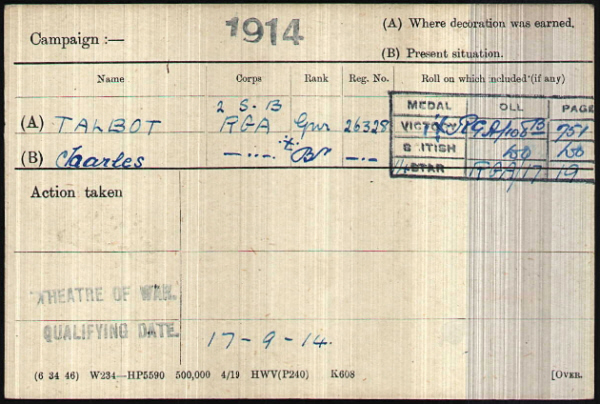 Campaign :— 1914 (A) Where decoration was earned.
(B) Present situation.
Name Corps Rank Reg. No. Roll on which included (if any)
MEDAL ROLL PAGE
2 S. B
(A) TALBOT RGA Gnr 26328 VICTORY RGA/108B 951
(B) Charles —..— Br —.— BRITISH do do
14 STAR RGA/17 19
Action taken
THEATRE OF WAR.
QUALIFYING DATE. 17-9-14.
(6 34 46) W234—HP5590 500,000 4/19 HWV(P240) K608 [OVER.